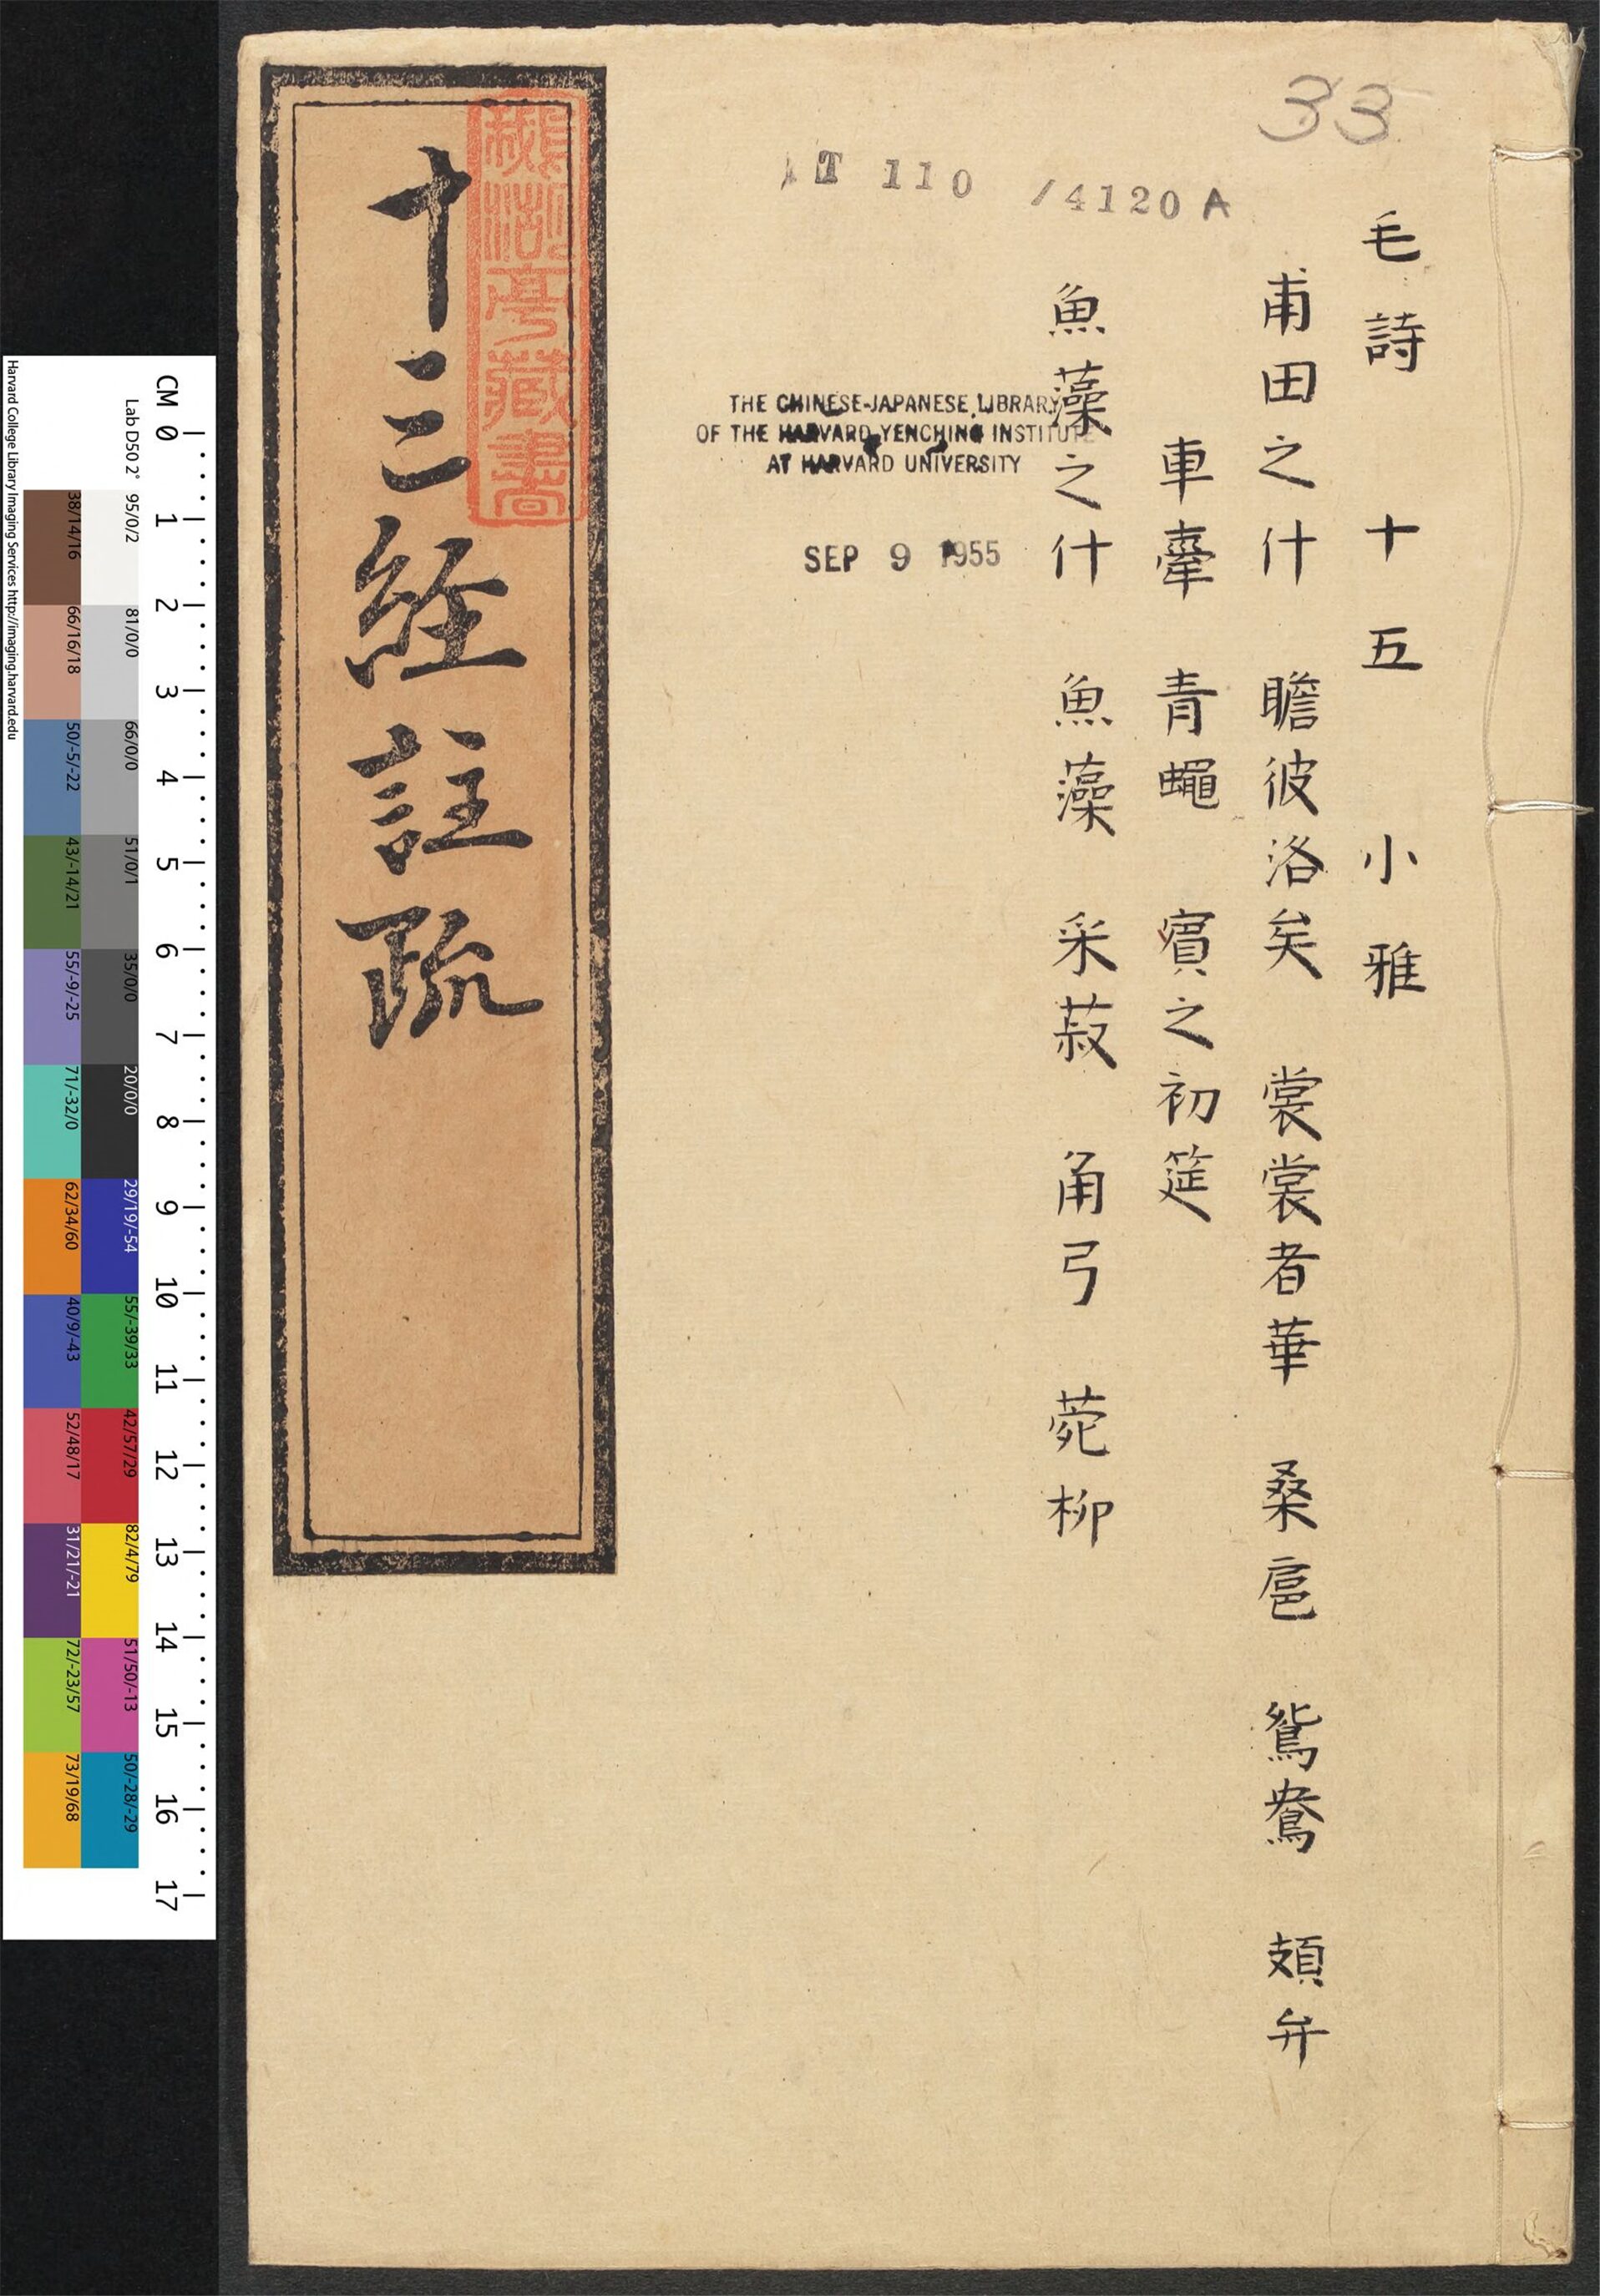 33
T 110 /4120 A
毛詩 十五 小雅
甫田之什 瞻彼洛矣 裳裳者華 桑扈 鴛鴦 頍弁
車舝 青蠅 賓之初筵
魚藻之什 魚藻 采菽 角弓 菀柳
THE CHINESE-JAPANESE LIBRARY
OF THE HARVARD-YENCHING INSTITUTE
AT HARVARD UNIVERSITY
SEP 9 1955
十三経註疏
亭藏書
CM 0 1 2 3 4 5 6 7 8 9 10 11 12 13 14 15 16 17
Lab D50 2° 95/0/2 81/0/0 66/0/0 51/0/1 35/0/0 20/0/0 29/19/-54 55/-39/33 42/57/29 82/4/79 51/50/-13 50/-28/-29
38/14/16 66/16/18 50/-5/-22 43/-14/21 55/-9/-25 71/-32/0 62/34/60 40/9/-43 52/48/17 31/21/-21 72/-23/57 73/19/68
Harvard College Library Imaging Services http://imaging.harvard.edu